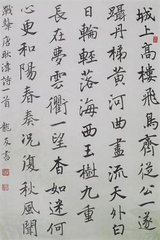 城上高樓飛鳥齊從公一遂
躡丹梯黃河曲盡流天外白
日輪輕落海西玉樹九重
長在夢雲衢一望杳如迷何
心更和陽春奏況復秋風聞
戰鼙唐耿湋詩一首 龍友書